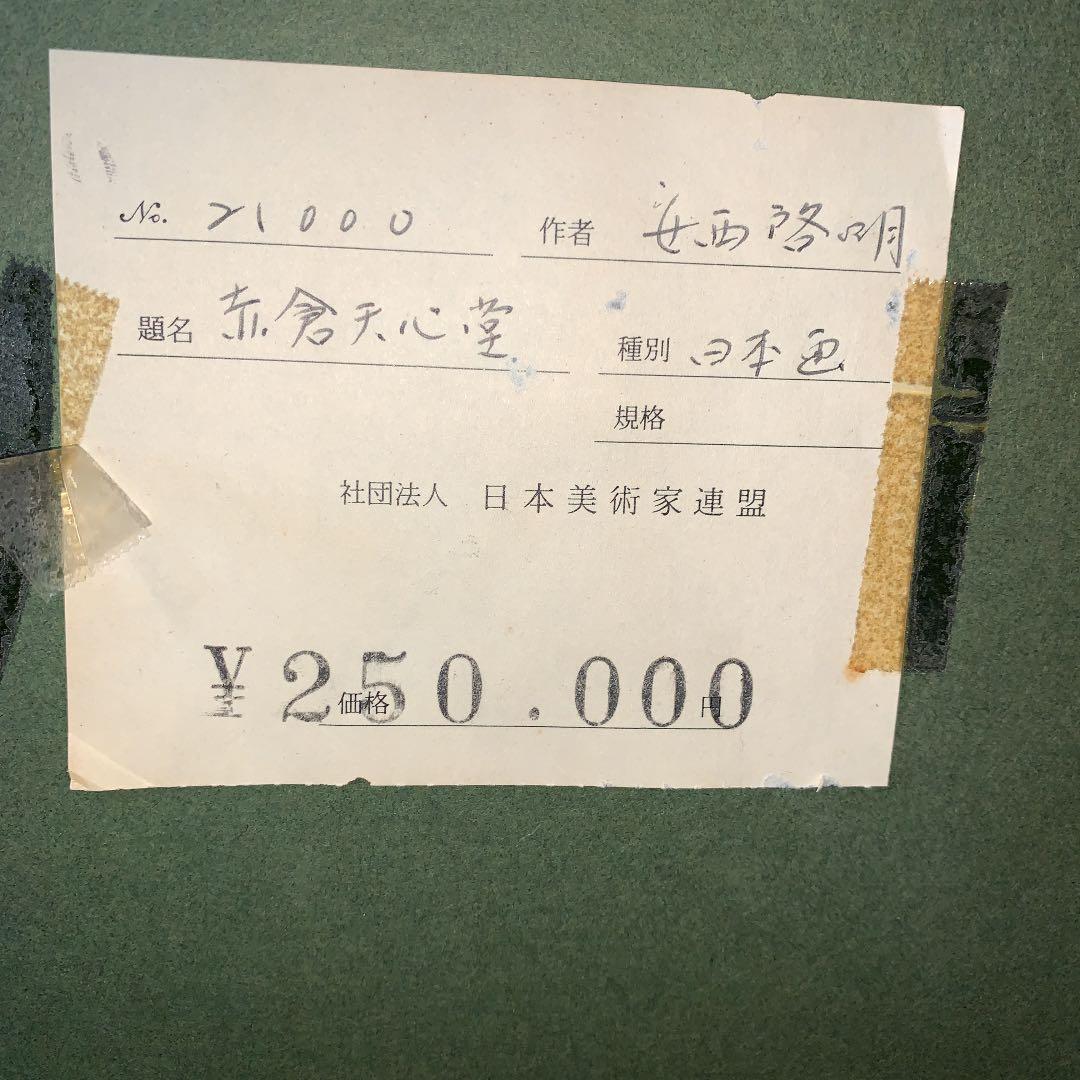 No. 21000 作者 安西啓明
題名 赤倉天心堂 種別 日本画
規格
社団法人 日本美術家連盟
¥250.000
価格 円